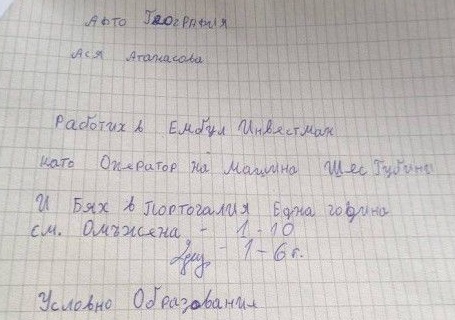 Афто География
Ася Атанасова
Работих в Ембул Инвестман
като Оператор на машина Шес Губино
И Бях в Портогалия Една година
см. Омъжена - 1-10
2 - 1-6г.
Условно Образования